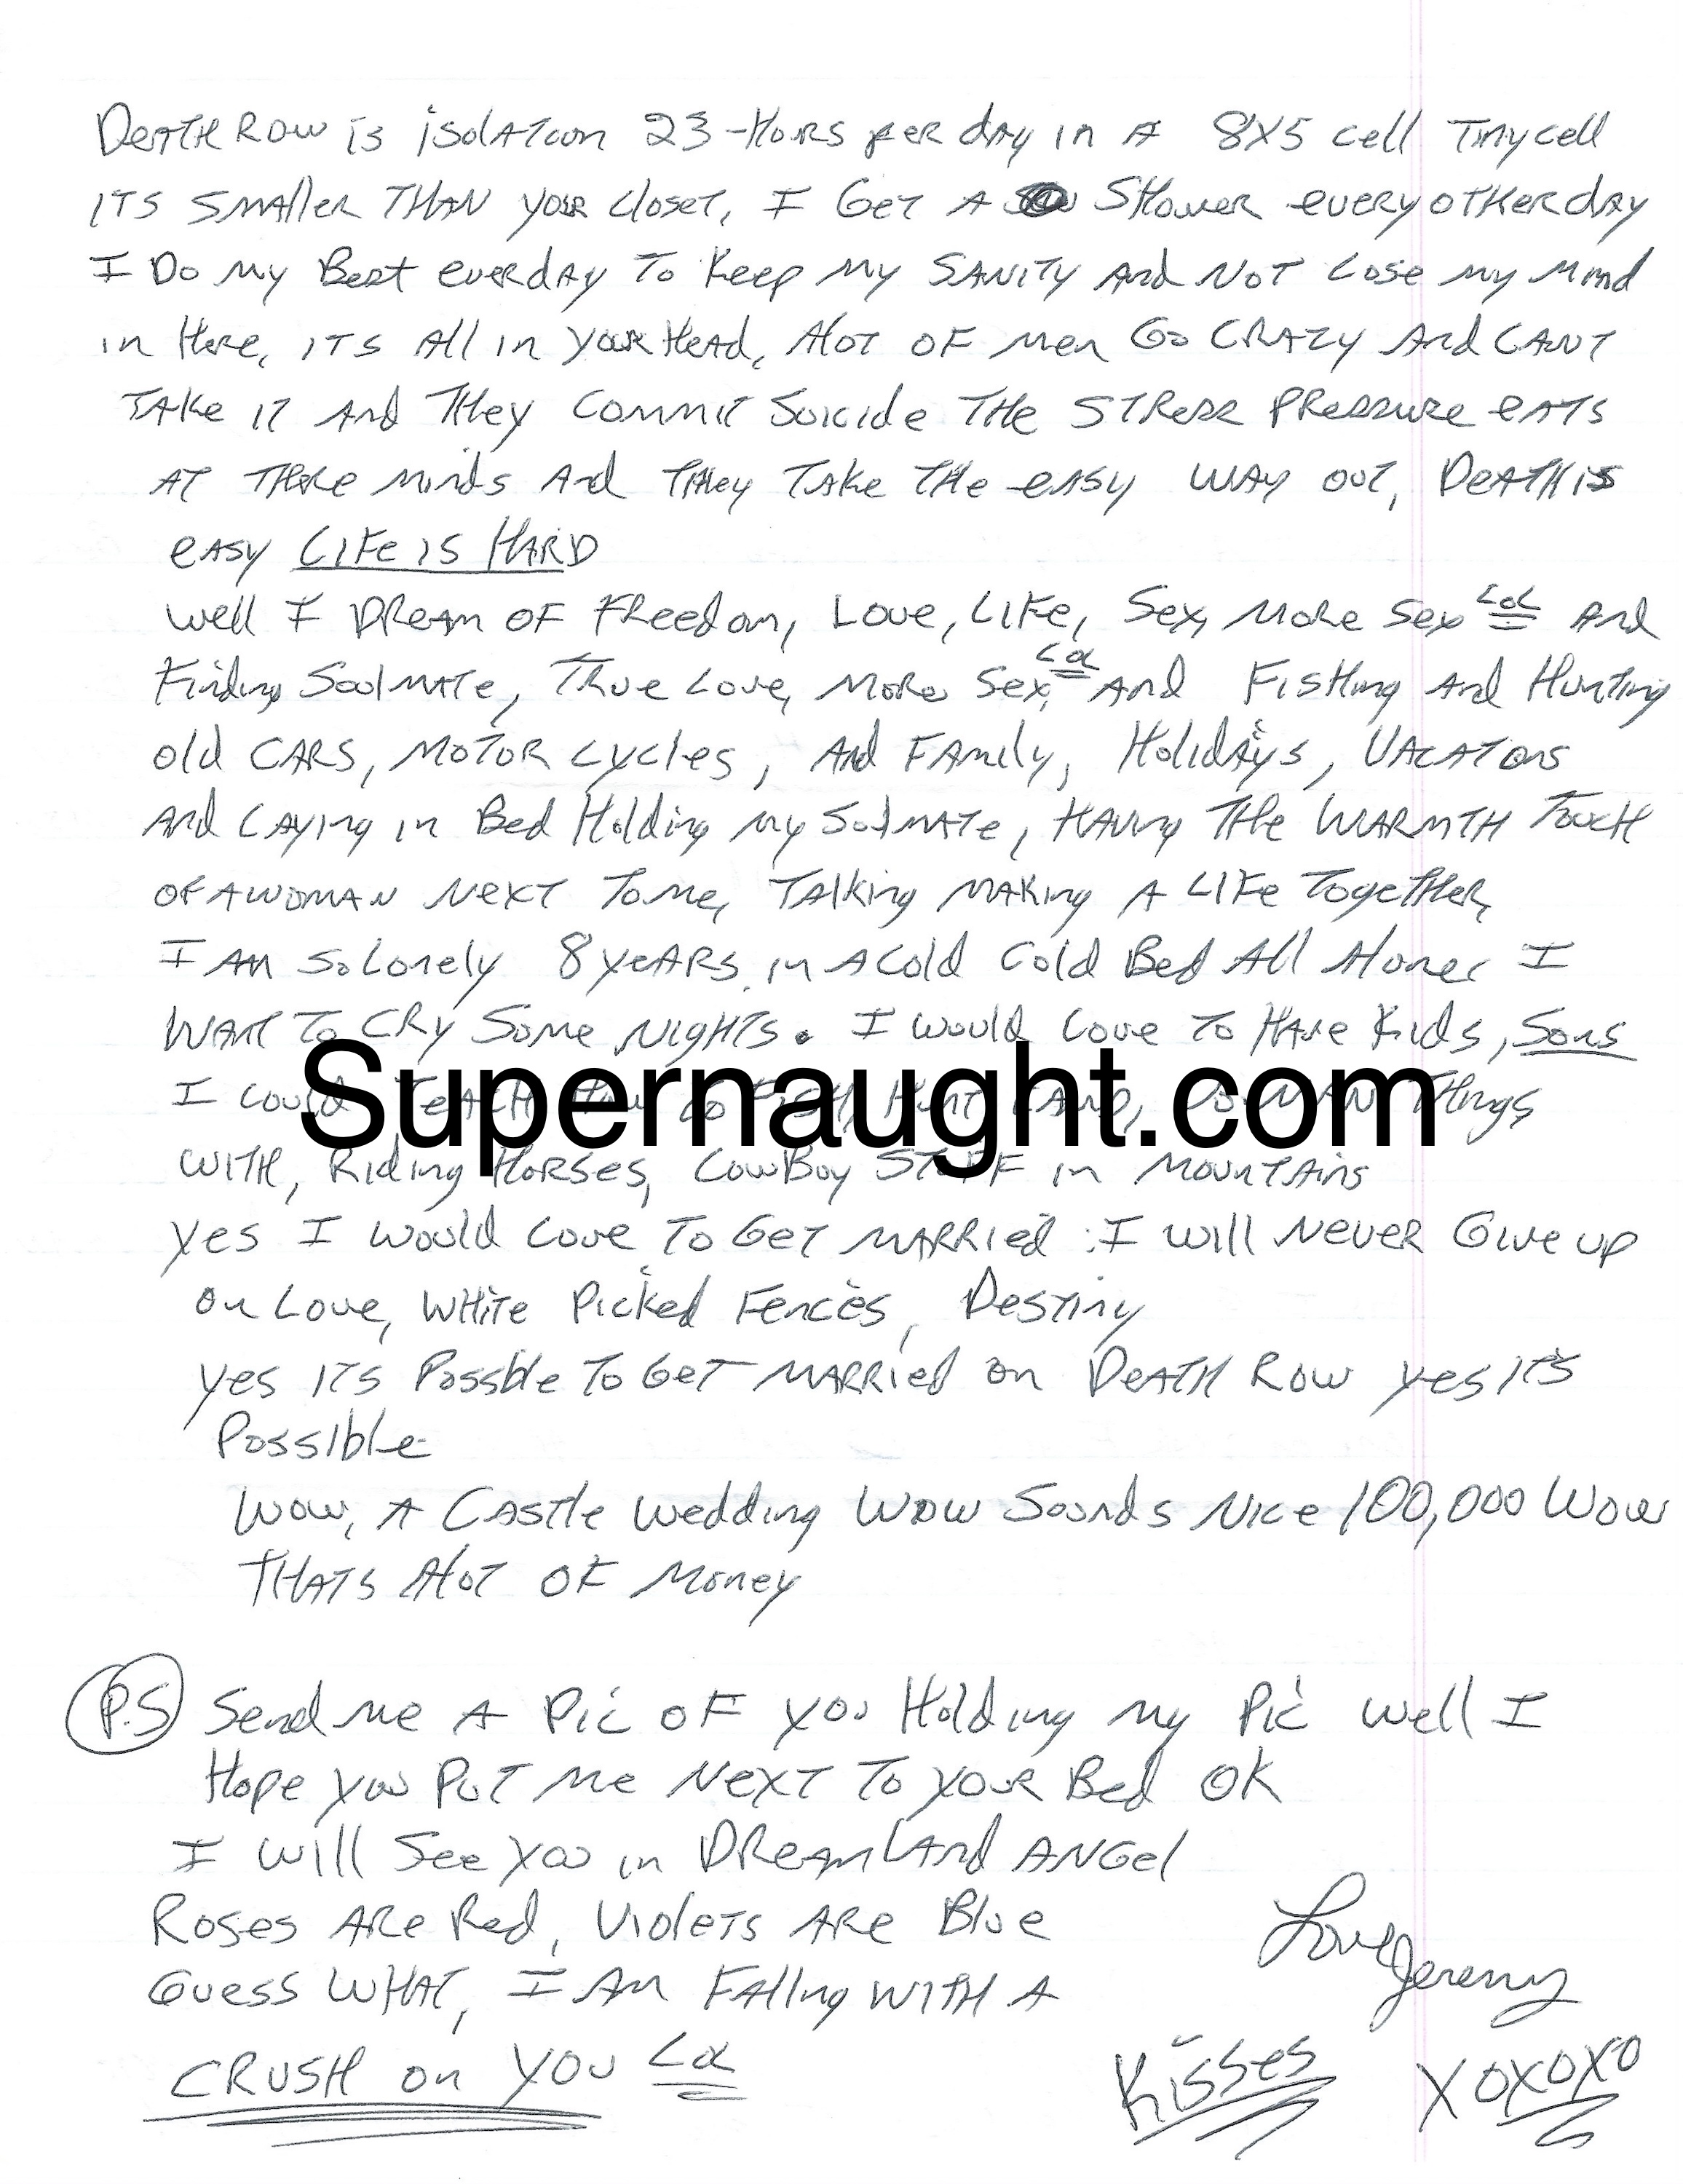 Death Row is isolatoon 23-Hors per day in A 8x5 cell Tiny cell
ITS SMAller THAN your closet, I Get A Shower every other day
I Do My Best everday To Keep My SANITY And NOT Lose My Mind
in Here, ITS All in your Head, Alot OF Men Go CRAZY And CANT
TAKe IT And They Commit Suicide The STRess PRessure eATS
AT There Minds And They Take The easy WAY OUT, DeATH is
eAsy LIFe IS HARD
Well I Dream OF Freedom, Love, LiFe, Sex, More Sex LOL And
Finding Soulmate, True Love, More Sex, LOL And Fishing And Hunting
old CARS, MoTor cycles, And FAmily, Holidays, VACATons
And Laying in Bed Holding my Soulmate, Having The WARMTH Touch
OF A WOMAN NexT To me, Talking MAKing A LiFe TogeTher,
I Am So Lonely 8 yeARS in A Cold Cold Bed All Alone I
WAnT To CRy Some NighTS. I would Love To Have Kids, Sons
I could TeACH How To Fish, Hunt, Things
Supernaught.com
WITH, Riding Horses, CowBoy STuFF in MounTAins
Yes I would Love To GeT MARRied I will Never Give up
On Love, White Picked Fences, Destiny
Yes ITS Possble To GeT MARRied on DeATH Row yes ITS
Possible
Wow, A CAstle Wedding Wow Sounds Nice 100,000 Wow
THATS Alot OF Money
P.S Send Me A Pic OF you Holding my Pic Well I
Hope you Put Me NexT To your Bed OK
I will See you in DReamLAnd ANGel
Roses ARe Red, VioleTs ARe Blue
Guess WHAT, I Am FAlling WITH A
CRUSH on YOU LOL
Love Jeremy
Kisses XOXOXO